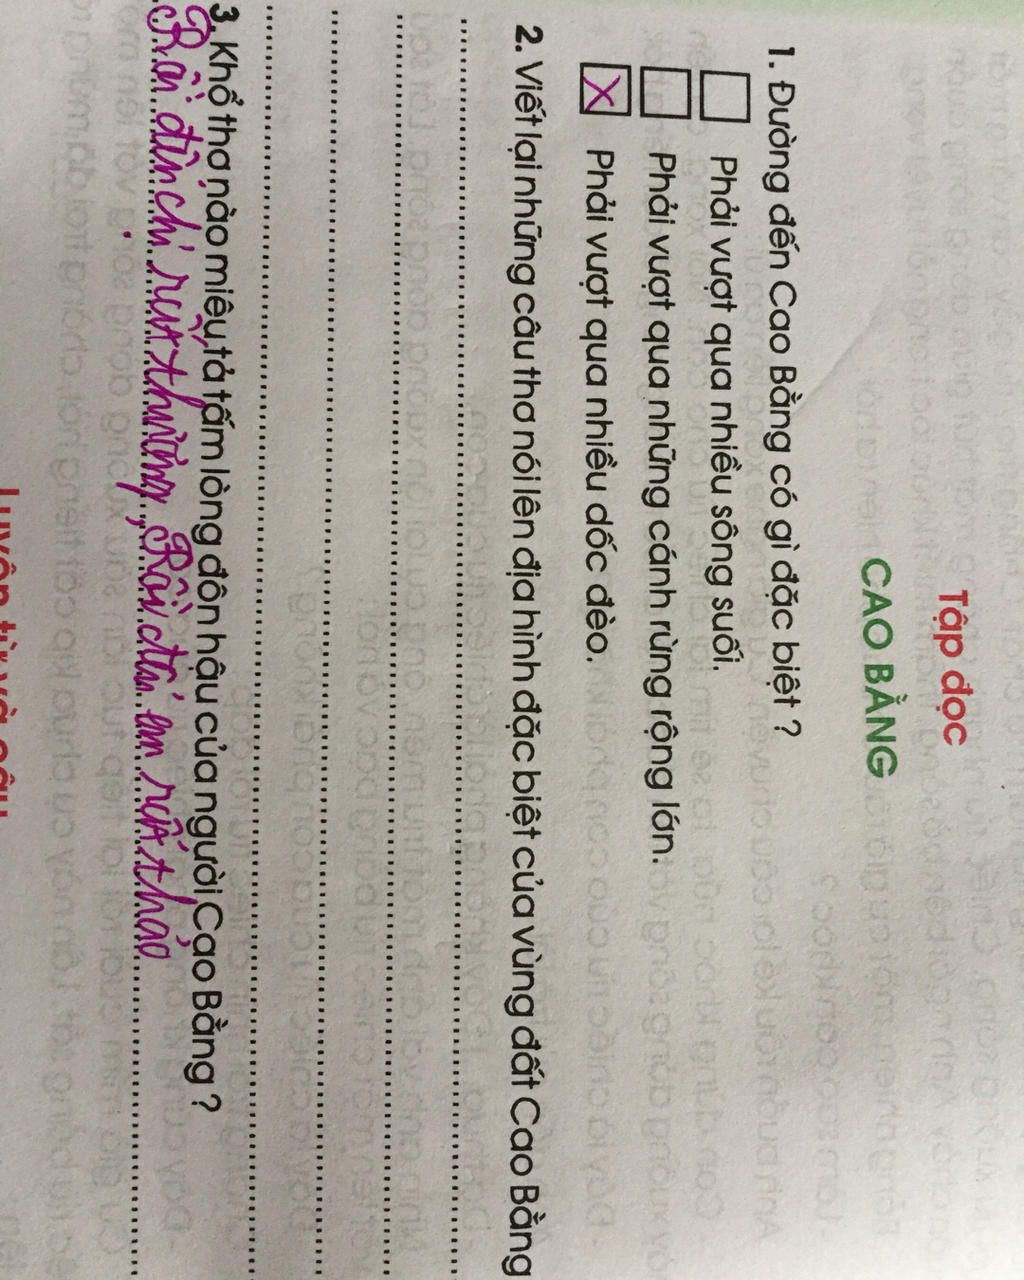 Tập đọc
CAO BẰNG
1. Đường đến Cao Bằng có gì đặc biệt ?
Phải vượt qua nhiều sông suối.
Phải vượt qua những cánh rừng rộng lớn.
X Phải vượt qua nhiều dốc đèo.
2. Viết lại những câu thơ nói lên địa hình đặc biệt của vùng đất Cao Bằng
3. Khổ thơ nào miêu tả tấm lòng đôn hậu của người Cao Bằng ?
Rồi đến chị rất thương, Rồi đến em rất thảo
Luyện từ và câu